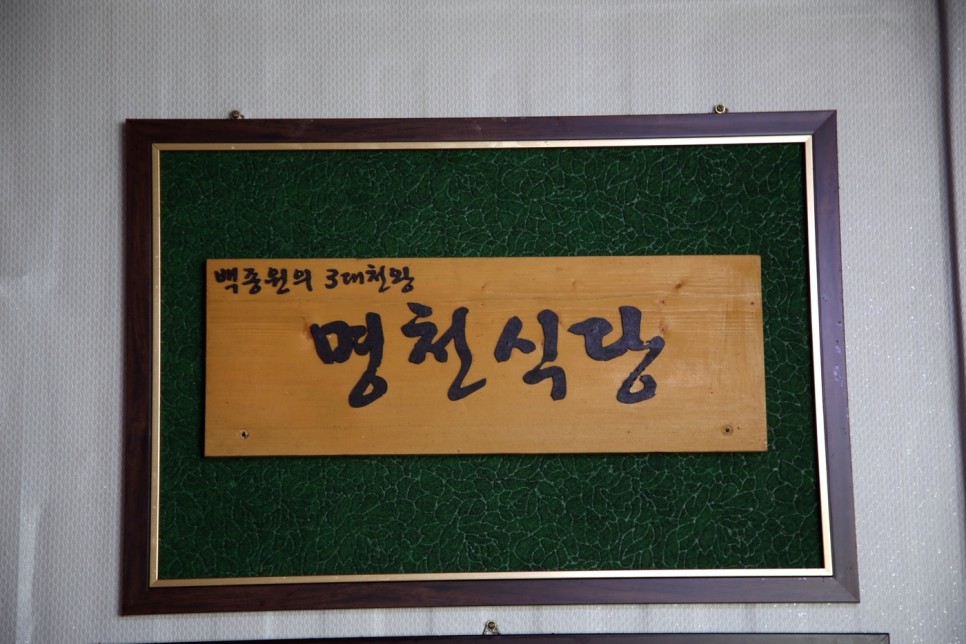 백종원의 3대천왕
명천식당